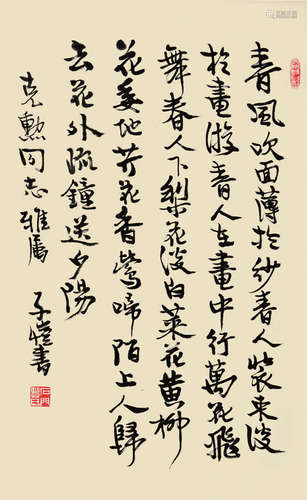 春風吹面薄於紗春人裝束淡
於畫游春人在畫中行萬花飛
舞春人下梨花淡白菜花黃柳
花委地芥花香鶯啼陌上人歸
去花外疏鐘送夕陽
克勲同志雅屬
子愷書